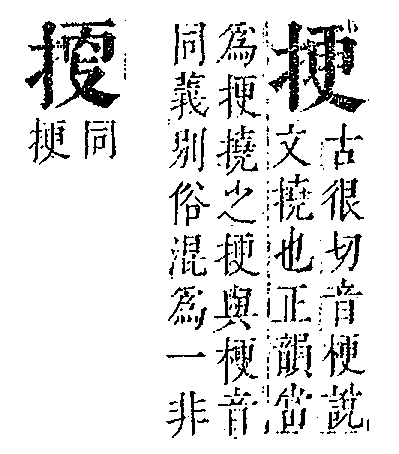 挭
古很切音梗說
文撓也正韻當
爲挭撓之挭與梗音
同義別俗混爲一非
同
挭